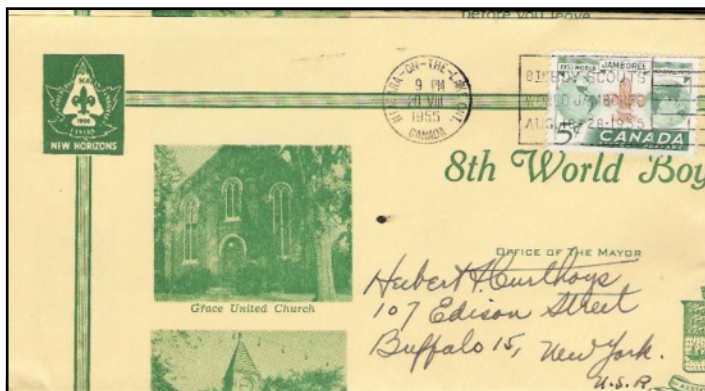 before you leave
NEW HORIZONS
NIAGARA-ON-THE-LAKE ONT
9 PM
20 VIII
1955
CANADA
8TH BOY SCOUTS
WORLD JAMBOREE
AUG. 18-28-1955
JAMBOREE
5¢ CANADA
8th World Boy
OFFICE OF THE MAYOR
Grace United Church
107 Edison Street
Buffalo 15, New York.
U.S.A.